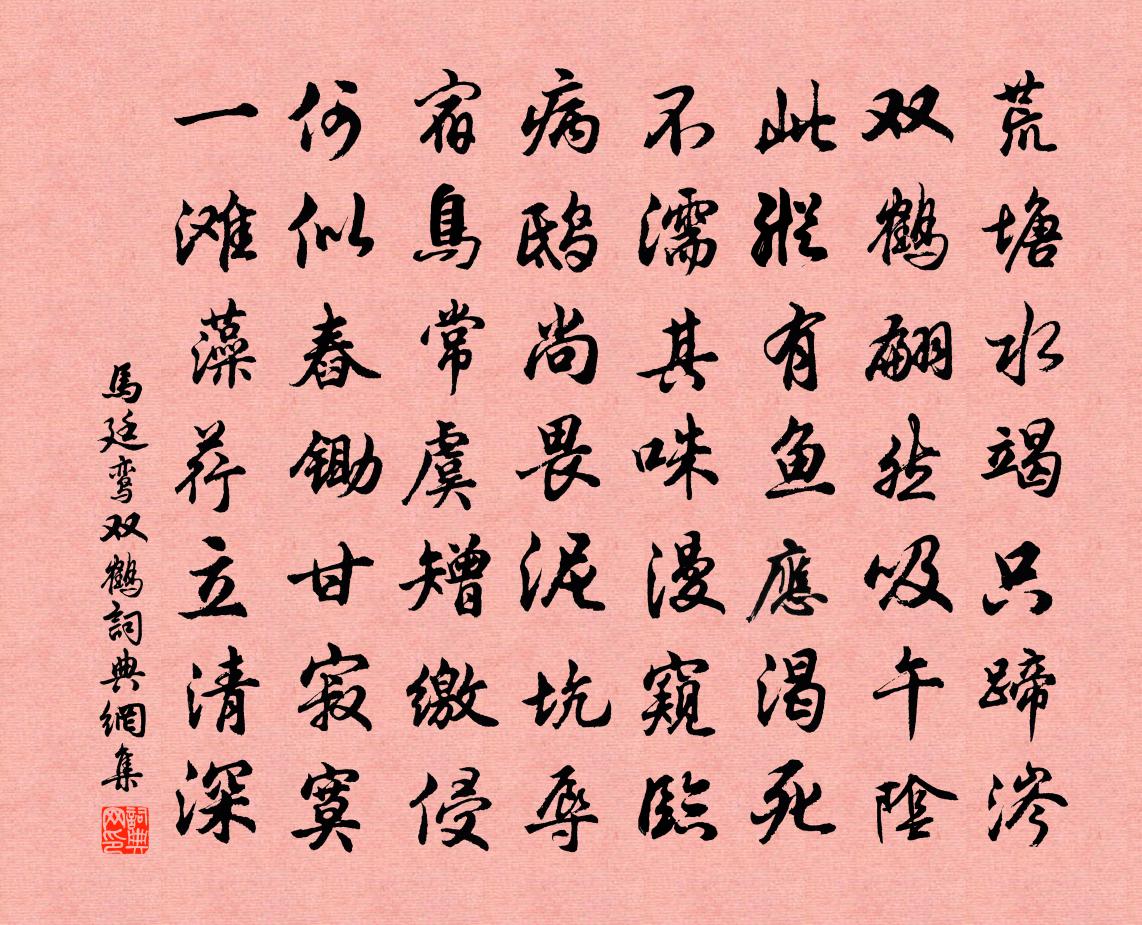 荒塘水竭只蹄涔
双鹤翩然吸午陰
此縱有鱼應渴死
不濡其咮漫窺臨
病鴟尚畏泥坑辱
宿鳥常虞矰繳侵
何似舂锄甘寂寞
一滩藻荇立清深
馬廷鸾双鶴詞典網集
詞典网印